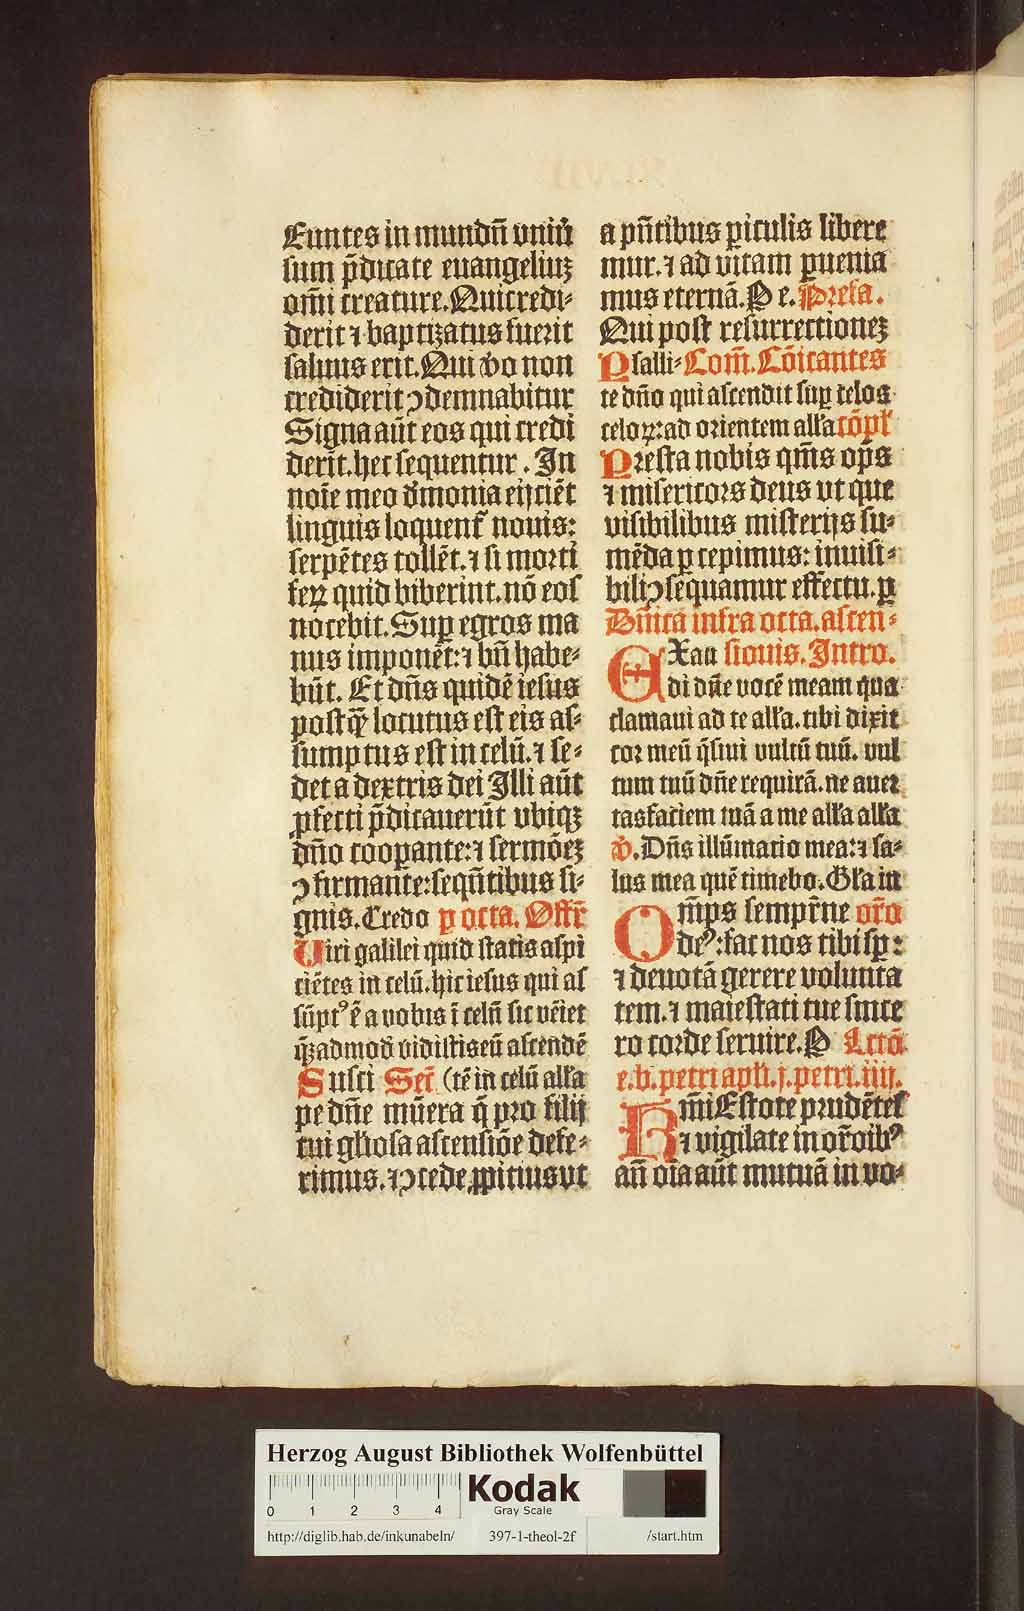 Euntes in mundū vniu̾
sum p̄dicate euangeliuꝫ
om̄i creature. Qui credi-
derit ⁊ baptizatus fuerit
saluus erit. Qui v̾o non
crediderit ꝯdemnabitur
Signa aūt eos qui credi
derīt. hec sequentur. In
noīe meo d̾monia eijciēt
linguis loquent᷑ nouis:
serpētes tollēt. ⁊ si morti
feꝝ quid biberint. nō eos
nocebit. Suꝑ egros ma
nus imponēt: ⁊ bn̄ habe-
būt. Et dn̄s quidē iesus
postq̄ locutus est eis as-
sumptus est in celū. ⁊ se-
det a dextris dei Illi aūt
ꝓfecti p̄dicauerūt vbiqꝫ
dn̄o cooꝑante: ⁊ sermōeꝫ
ꝯfirmante: sequētibus si-
gnis. Credo ꝑ octa. Offr̄
Uiri galilei quid statis aspi
ciētes in celū. hic iesus qui as
sūpt⁹ ē a vobis ī celū sic vēiet
q̄ꝫadmod̄ vidistis eū ascendē
Susci Sec̄. (tē in celū all̄a
pe dn̄e mūera q̄ pro filij
tui gl̄iosa ascensiōe defe-
rimus. ⁊ ꝯcede ꝓpitius vt
a pn̄tibus ꝑiculis libere
mur. ⁊ ad vitam ꝑuenia
mus eternā. P e. Prefa.
Qui post resurrectioneꝫ
Psalli- Com̄. Cōicantes
te dn̄o qui ascendit suꝑ celos
celoꝝ: ad orientem all̄a cōpl̄
Presta nobis qm̄s op̄s
⁊ misericors deus vt que
visibilibus misterijs su-
mēda ꝑcepimus: inuisi-
bili ꝯsequamur effectu. ꝑ
Dn̄ica infra octa. ascen-
EXau sionis. Intro.
di dn̄e vocē meam qua
clamaui ad te all̄a. tibi dixit
cor meū q̄siui vultū tuū. vul
tum tuū dn̄e requirā. ne auer
tas faciem tuā a me all̄a all̄a
v̾. Dn̄s illūinatio mea: ⁊ sa-
lus mea quē timebo. Gl̄a in
Om̄ps sempr̄ne or̄o
de⁹: fac nos tibi sꝑ:
⁊ deuotā gerere volunta
tem. ⁊ maiestati tue since
ro corde seruire. P Lctō
e. b. petri apl̄i. j. petri. iiij.
Km̄i Estote prudētes
⁊ vigilate in or̄oib⁹
an̄ oīa aūt mutuā in vo-
Herzog August Bibliothek Wolfenbüttel
0 1 2 3 4
Kodak
Gray Scale
http://diglib.hab.de/inkunabeln/ 397-1-theol-2f /start.htm